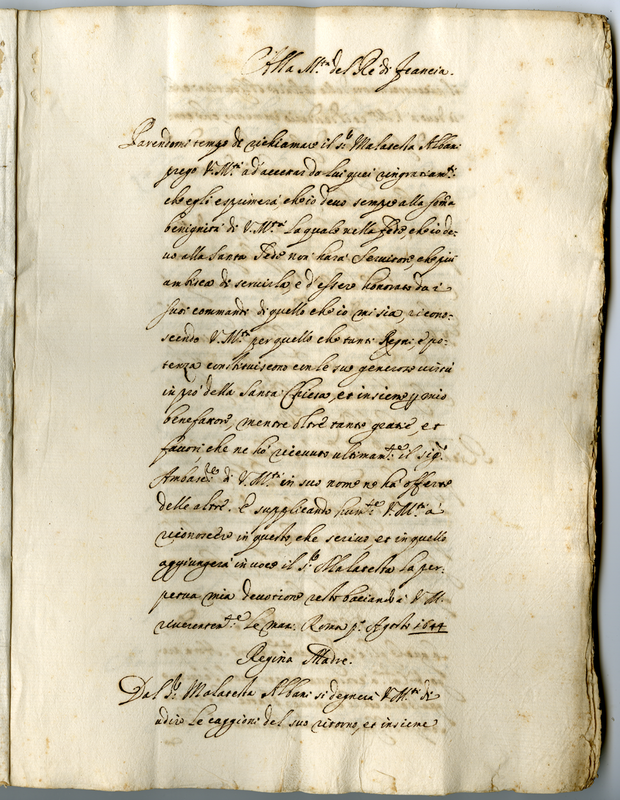 Alla M.tà del Re di Francia.
Parendomi tempo di richiamare il S.r Malatesta Albani
prego V. M.tà ad accettar da lui quei ringratiam.ti
che egli esprimerà che io devo sempre alla somma
benignità di V. M.tà la quale nella fede, che io de-
vo alla Santa Sede non havrà servitore, che più
ambisca di servirla, e d'esser honorato da i
suoi commandi di quello che io mi sia, ricono-
scendo V. M.tà per quello che tanti Regni, e po-
tenza constituiscono con le sue generose virtù
in prò della Santa Chiesa, et insieme p mio
benefattore, mentre oltre tante gratie et
favori che ne hò ricevuto ultimam.te il sig.r
Ambasc.re di V. M.tà in suo nome ne ha offerte
delle altre. E supplicando hum.te V. M.tà à
riconoscere in questo, che scrivo et in quello
aggiungerà in voce il S.r Malatesta la per-
petua mia devotione resto baciando à V. M.
reverentem.te le mani. Roma p.o Agosto 1644
Regina Madre.
Dal S.r Malatesta Albani si degnerà V. M.tà di
udire le caggioni del suo ritorno, et insieme